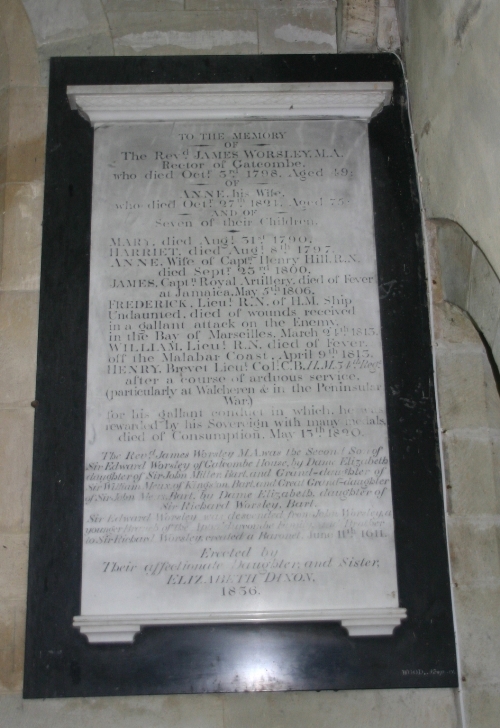 TO THE MEMORY
OF
The Rev.d JAMES WORSLEY, M.A.
Rector of Gatcombe,
who died Oct.r 5th 1798, Aged 49;
OF
ANNE, his Wife,
who died Oct.r 27th Aged 75
AND OF
Seven of their Children,
MARY, died Aug.t 31st 1790,
HARRIET, died Aug.t 8th 1797.
ANNE, Wife of Capt.n Henry Hill, R.N.
died Sept.r 23rd 1800.
JAMES, Capt.n Royal Artillery, died of Fever
at Jamaica, May 5th 1806.
FREDERICK, Lieu.t R.N. of H.M. Ship
Undaunted, died of wounds received
in a gallant attack on the Enemy,
in the Bay of Marseilles, March 1813.
WILLIAM, Lieu.t R.N. died of Fever,
off the Malabar Coast, April 9th 1813.
HENRY, Brevet Lieu.t Col. C.B. H.M. 34th Reg.t
after a course of arduous service,
(particularly at Walcheren & in the Peninsular
War)
for his gallant conduct in which, he was
rewarded by his Sovereign with many medals,
died of Consumption, May 13th
The Rev.d James Worsley M.A. was the Second Son of
Sir Edward Worsley of Gatcombe House, by Dame Elizabeth
daughter of Sir John Miller, Bart. and Grand-daughter of
Sir William Meux of Kingston, Bart. and Great Grand-daughter
of Sir John Meux, Bart. by Dame Elizabeth, daughter of
Sir Richard Worsley, Bart.
Sir Edward Worsley was descended from John Worsley, a
younger Brother
to Sir Richard Worsley, created a Baronet, June 11th 1611.
Erected by
Their affectionate Daughter, and Sister,
ELIZABETH DIXON,
1836.
WOOD,